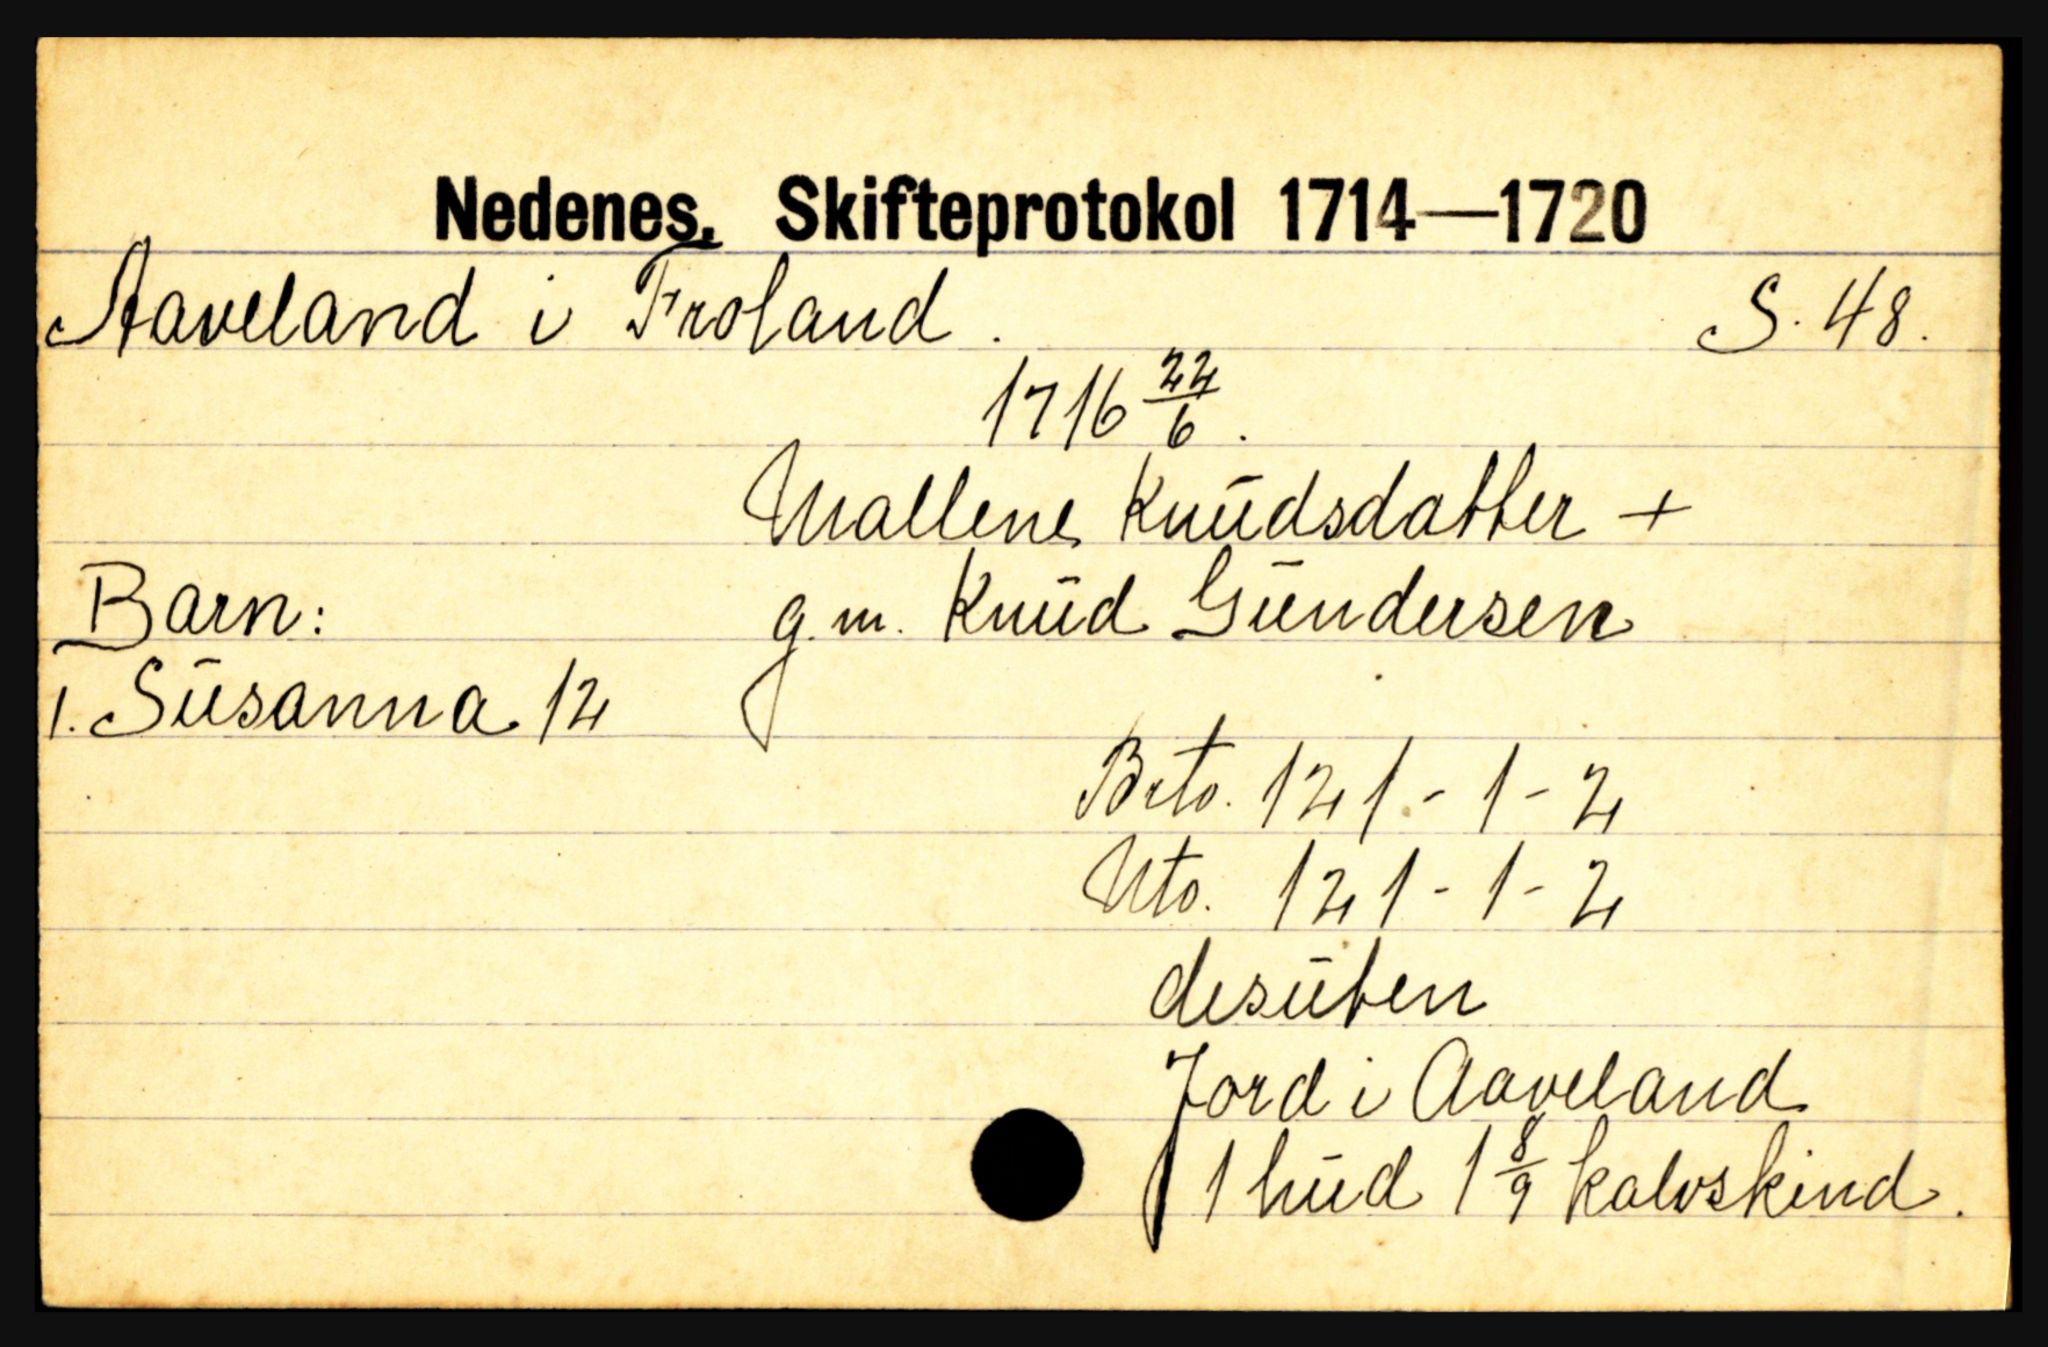 Nedenes. Skifteprotokol 1714—1720
Aaveland i Froland. S. 48.
1716 22/6.
Mallene Knūdsdatter +
Barn: g.m. Knūd Gūndersen
1. Sūsanna 12
Brto. 121 - 1 - 2
Nto. 121 - 1 - 2
desūten
Jord i Aaveland
1 hūd 1 8/9 kalvskind.